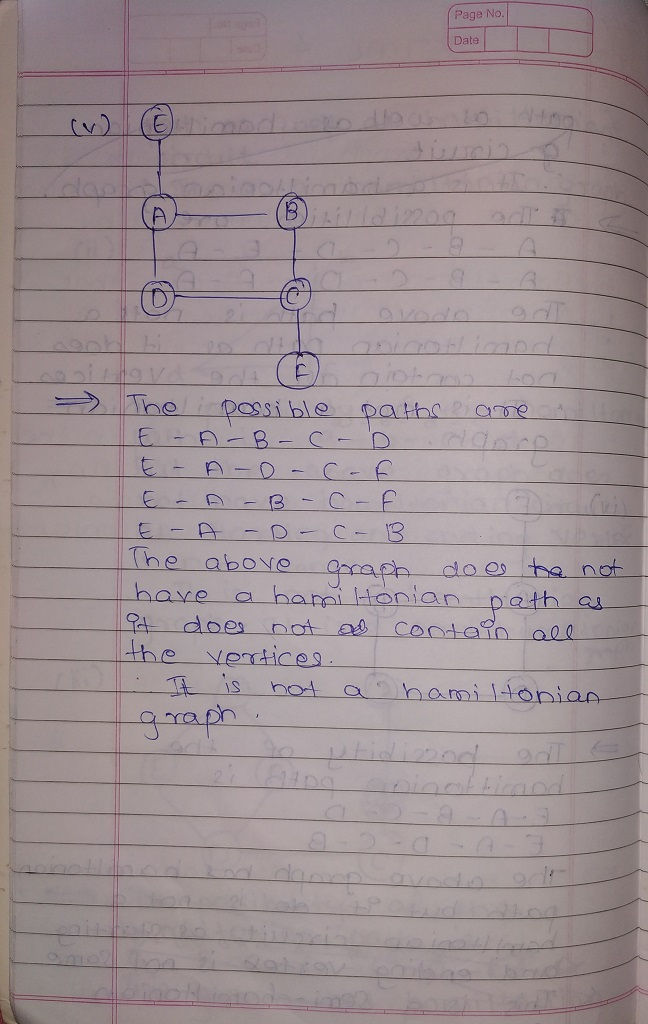 Page No.
Date
(v) E
A B
D C
F
⇒ The possible paths are
E - A - B - C - D
E - A - D - C - F
E - A - B - C - F
E - A - D - C - B
The above graph does not
have a hamiltonian path as
it does not contain all
the vertices.
∴ It is not a hamiltonian
graph.